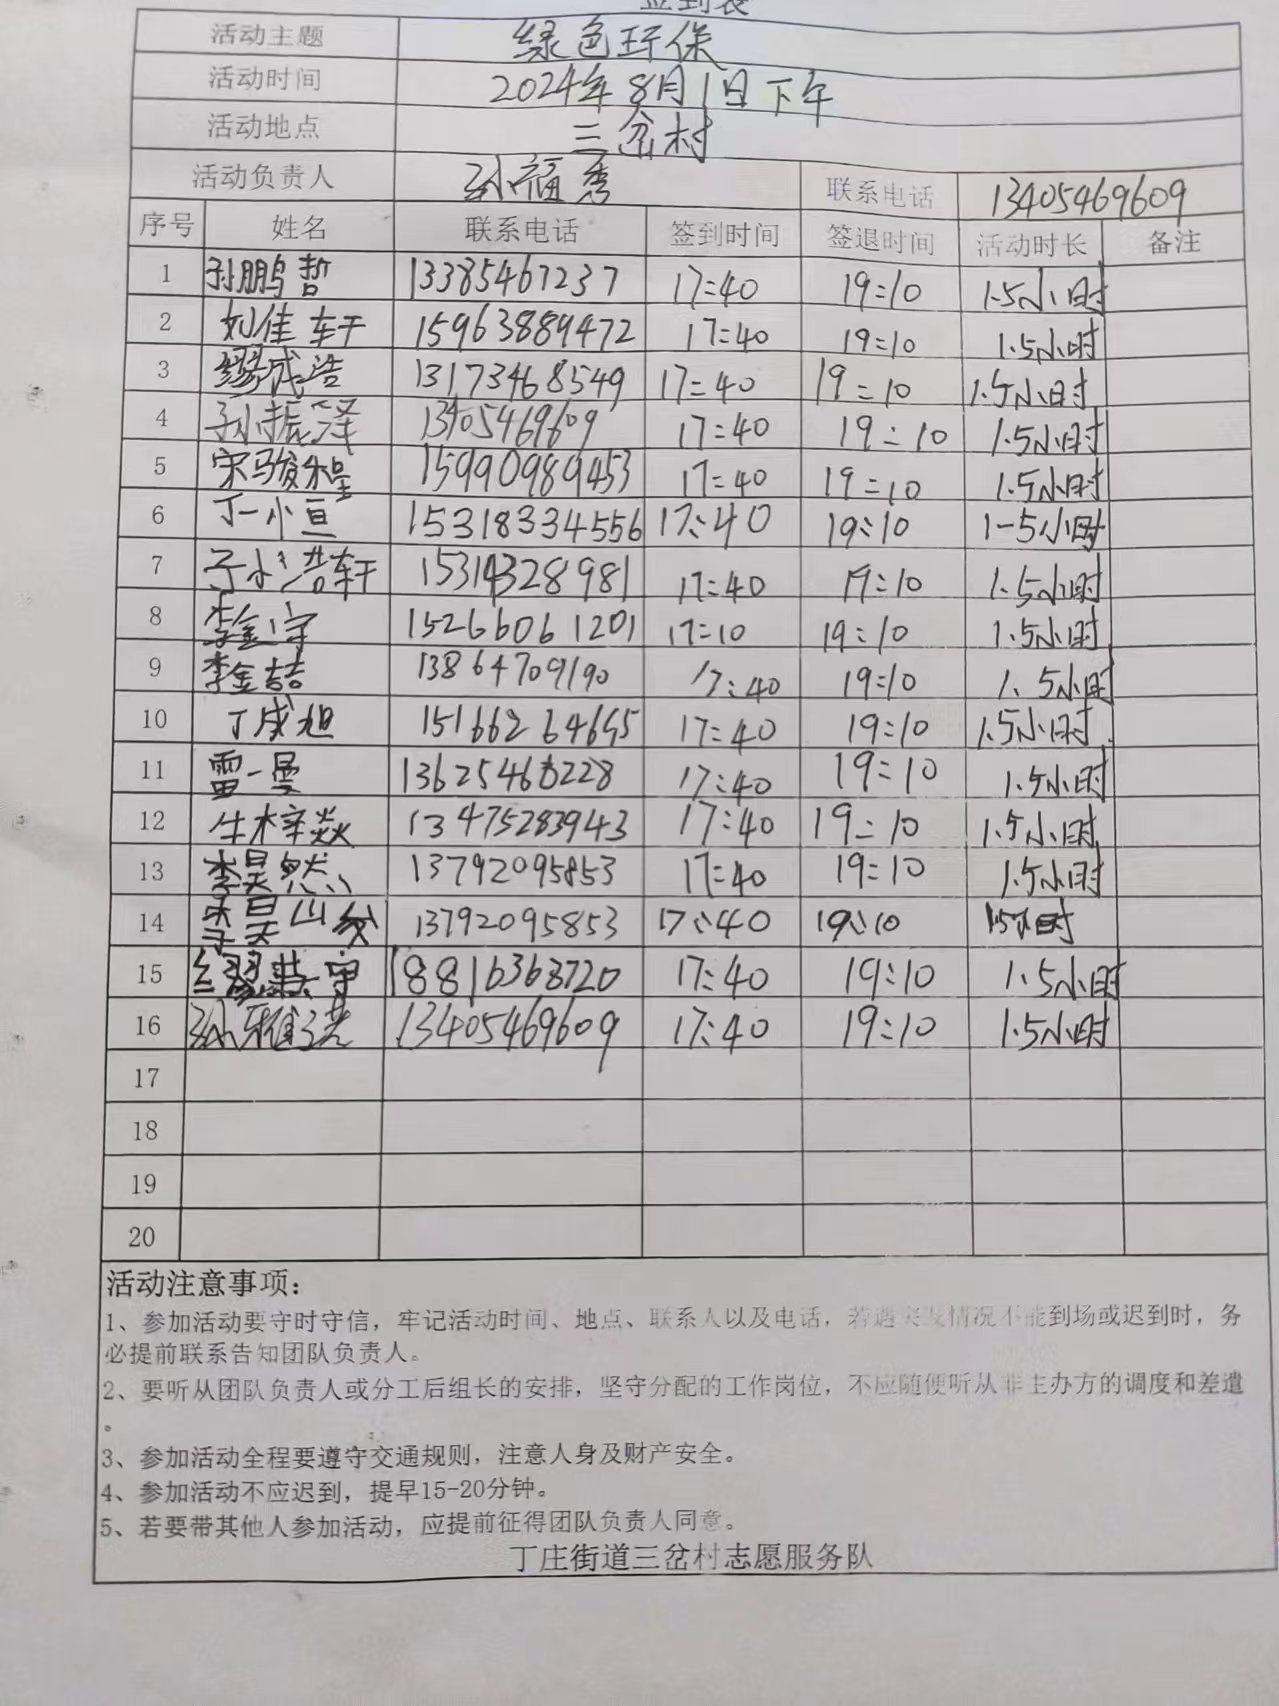 签到表
活动主题 绿色环保
活动时间 2024年8月1日下午
活动地点 三岔村
活动负责人 孙福秀 联系电话 13405469609
序号 姓名 联系电话 签到时间 签退时间 活动时长 备注
1 孙鹏哲 13385467237 17:40 19:10 1.5小时
2 刘佳轩 15963889472 17:40 19:10 1.5小时
3 缪成浩 13173468549 17:40 19:10 1.5小时
4 孙振泽 13405469609 17:40 19:10 1.5小时
5 宋骏程 15990989453 17:40 19:10 1.5小时
6 丁一小亘 15318334556 17:40 19:10 1-5小时
7 孙浩轩 15314328981 17:40 19:10 1.5小时
8 李金守 15266061201 17:10 19:10 1.5小时
9 李金喆 13864709190 17:40 19:10 1.5小时
10 丁成旭 15166264655 17:40 19:10 1.5小时
11 雷一曼 13625468228 17:40 19:10 1.5小时
12 牛梓焱 13475283943 17:40 19:10 1.5小时
13 李昊然 13792095853 17:40 19:10 1.5小时
14 李昊 13792095853 17:40 19:10 1.5小时
15 18816368720 17:40 19:10 1.5小时
16 孙雅 13405469609 17:40 19:10 1.5小时
17
18
19
20
活动注意事项：
1、参加活动要守时守信，牢记活动时间、地点、联系人以及电话，若遇突发情况不能到场或迟到时，务
必提前联系告知团队负责人。
2、要听从团队负责人或分工后组长的安排，坚守分配的工作岗位，不应随便听从非主办方的调度和差遣
。
3、参加活动全程要遵守交通规则，注意人身及财产安全。
4、参加活动不应迟到，提早15-20分钟。
5、若要带其他人参加活动，应提前征得团队负责人同意。
丁庄街道三岔村志愿服务队